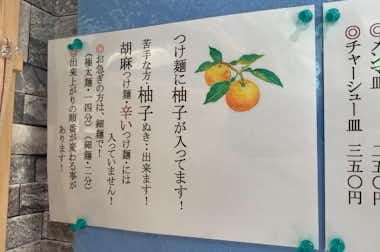 ◎メンマ皿
◎チャーシュー皿 三五〇円
つけ麺に柚子が入ってます！
苦手な方・柚子ぬき・出来ます！
胡麻つけ麺・辛いつけ麺・には
入っていません！
◎お急ぎの方は、細麺で！
（極太麺・一四分）（細麺・二分）
◎出来上がりの順番が変わる事が
あります！